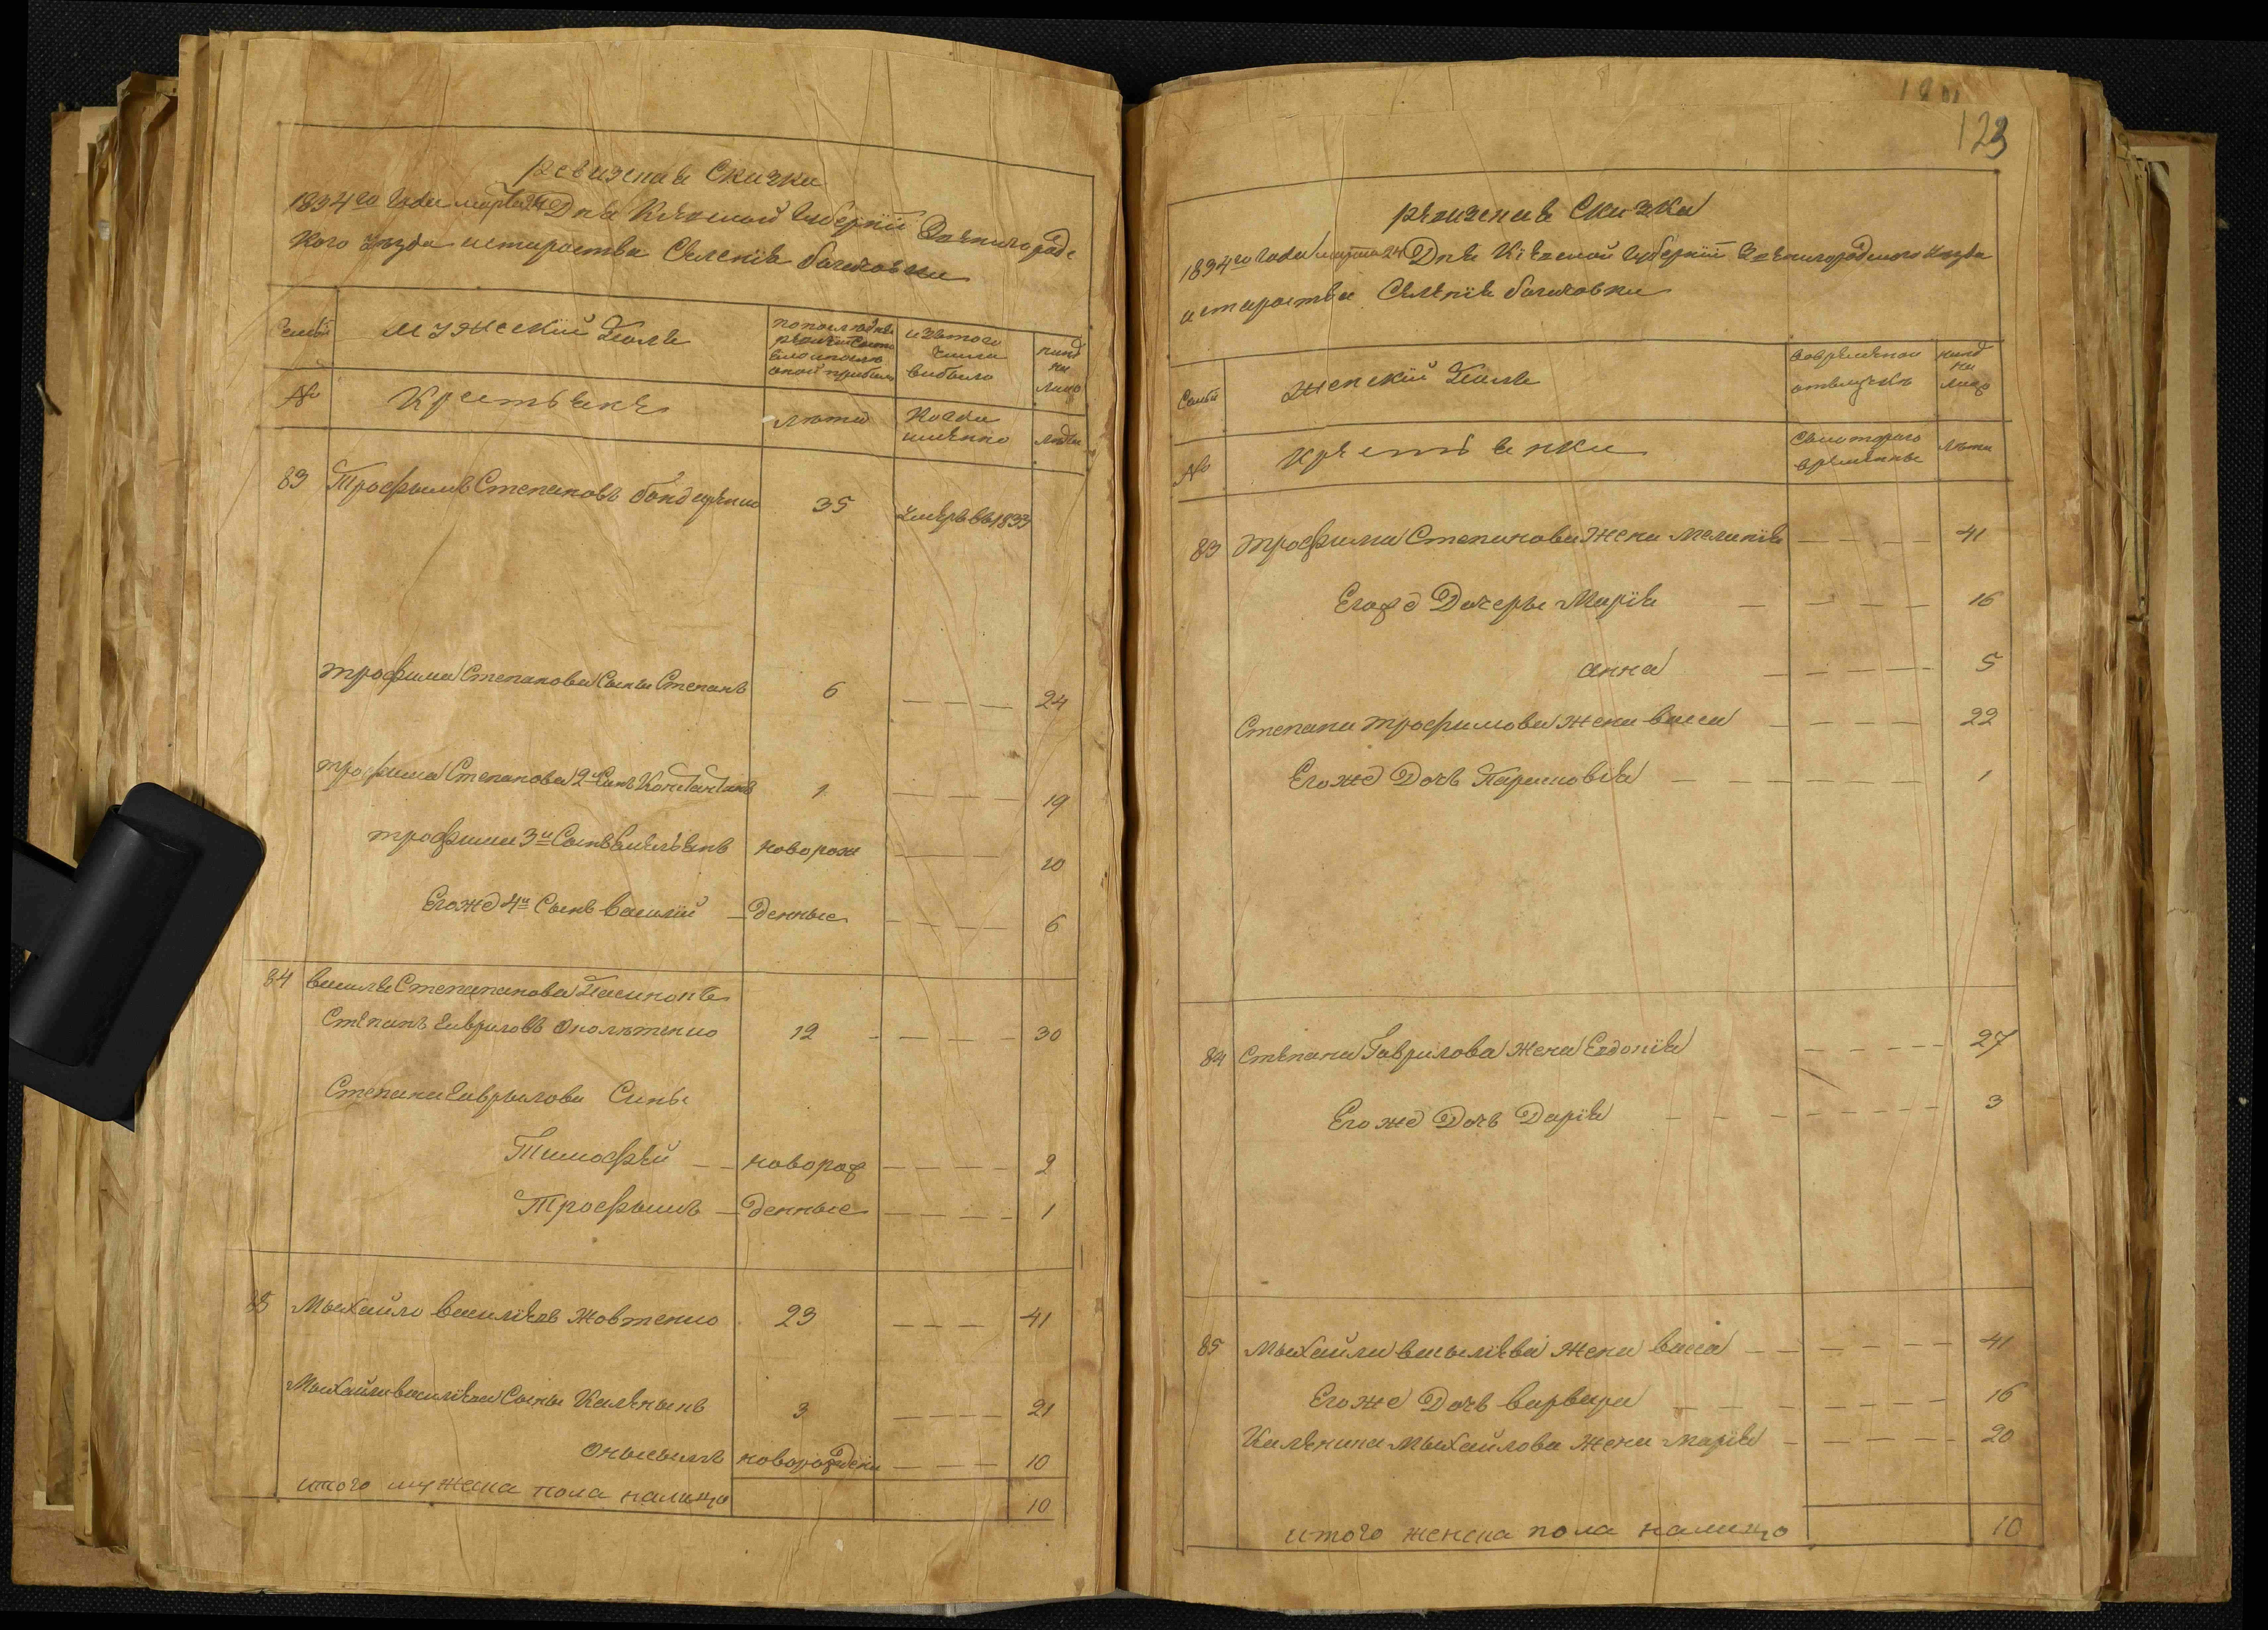 ревизская Сказка
1834го Года марта 24 Дня Киевской Губернїи Звенигородс
кого уезда староства Селенїя
Семьи
мужеский Полъ
по последней
ревизїи состо
яло и после
оной прибыло
изъ того
числа
выбыло
ныне
на
лицо
№
Крестьяне
лета
Когда
именно
лета
83 Трофимъ Степановъ бондаренко 35 умеръ въ 1833
трофима Степанова Сынъ Степанъ 6 — — — — 24
трофима Степанова 2й Сынъ Константинъ 1 — — — — 19
трофима 3й Сынъ новорож — — — 10
Егоже 4й Сынъ василїй — денные — — — — 6
84 василя Степанова Пасинокъ
Степанъ Гавриловъ 12 - — — — — 30
Степана Гаврилова Сины
Тимофей — — новорож — — — — 2
Трофымъ — денные — — — — 1
85 Мыхайло василїевъ Жовтенко 23 — — — 41
Мыхайла василїева Сыны Каленыкъ 3 — — — — 21
Онысымъ новорожден — — — 10
итого мужеска пола налицо 10
123
ревизская Сказка
1834го Года марта 24 Дня Кїевской Губернїи Звенигородского уезда
староства Селенїя
Семьи
женский Полъ
во временной
отлучке
ныне
на
лицо
№
крестьянки
с которого
времени
лета
83 трофима Степанова жена меланїя — — — — 41
Егож Дочеры Марїя — — — — 16
анна — — — — 5
Степана трофимова жена васса — — — — 22
Егоже Дочь Парасковїя — — — — 1
84 Степана Гаврилова жена Евдокїя — — — — 27
Егоже Дочь Дарїя — — — — 3
85 Мыхайла василїева жена васса — — — — — 41
Егоже Дочь варвара — — — — 16
Каленика мыхайлова жена марїя — — — — 20
итого женска пола налицо 10